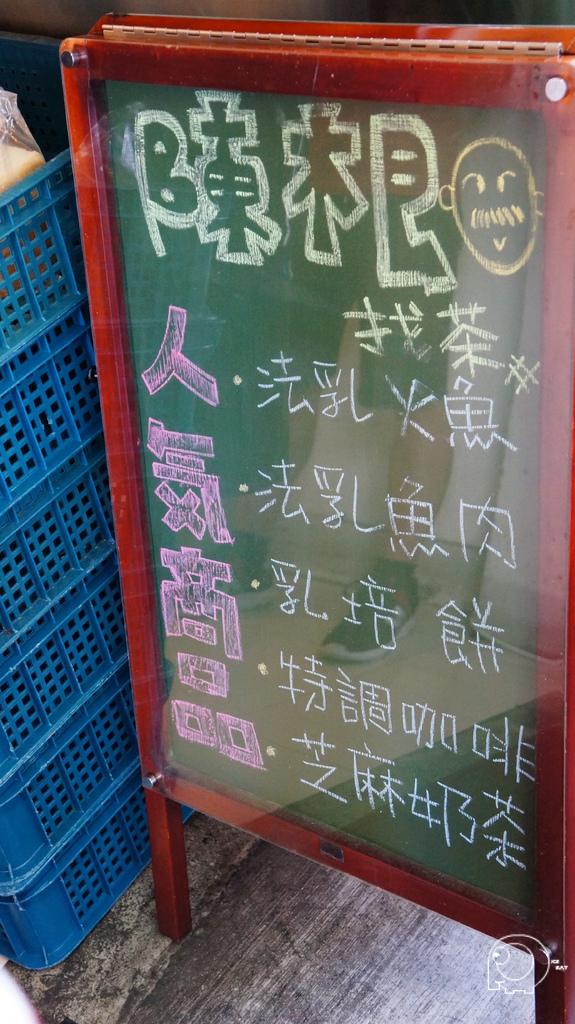 陳根
找茶#
人氣商品
法乳火魚
法乳魚肉
乳培餅
特調咖啡
芝麻奶茶
ICE
EAT